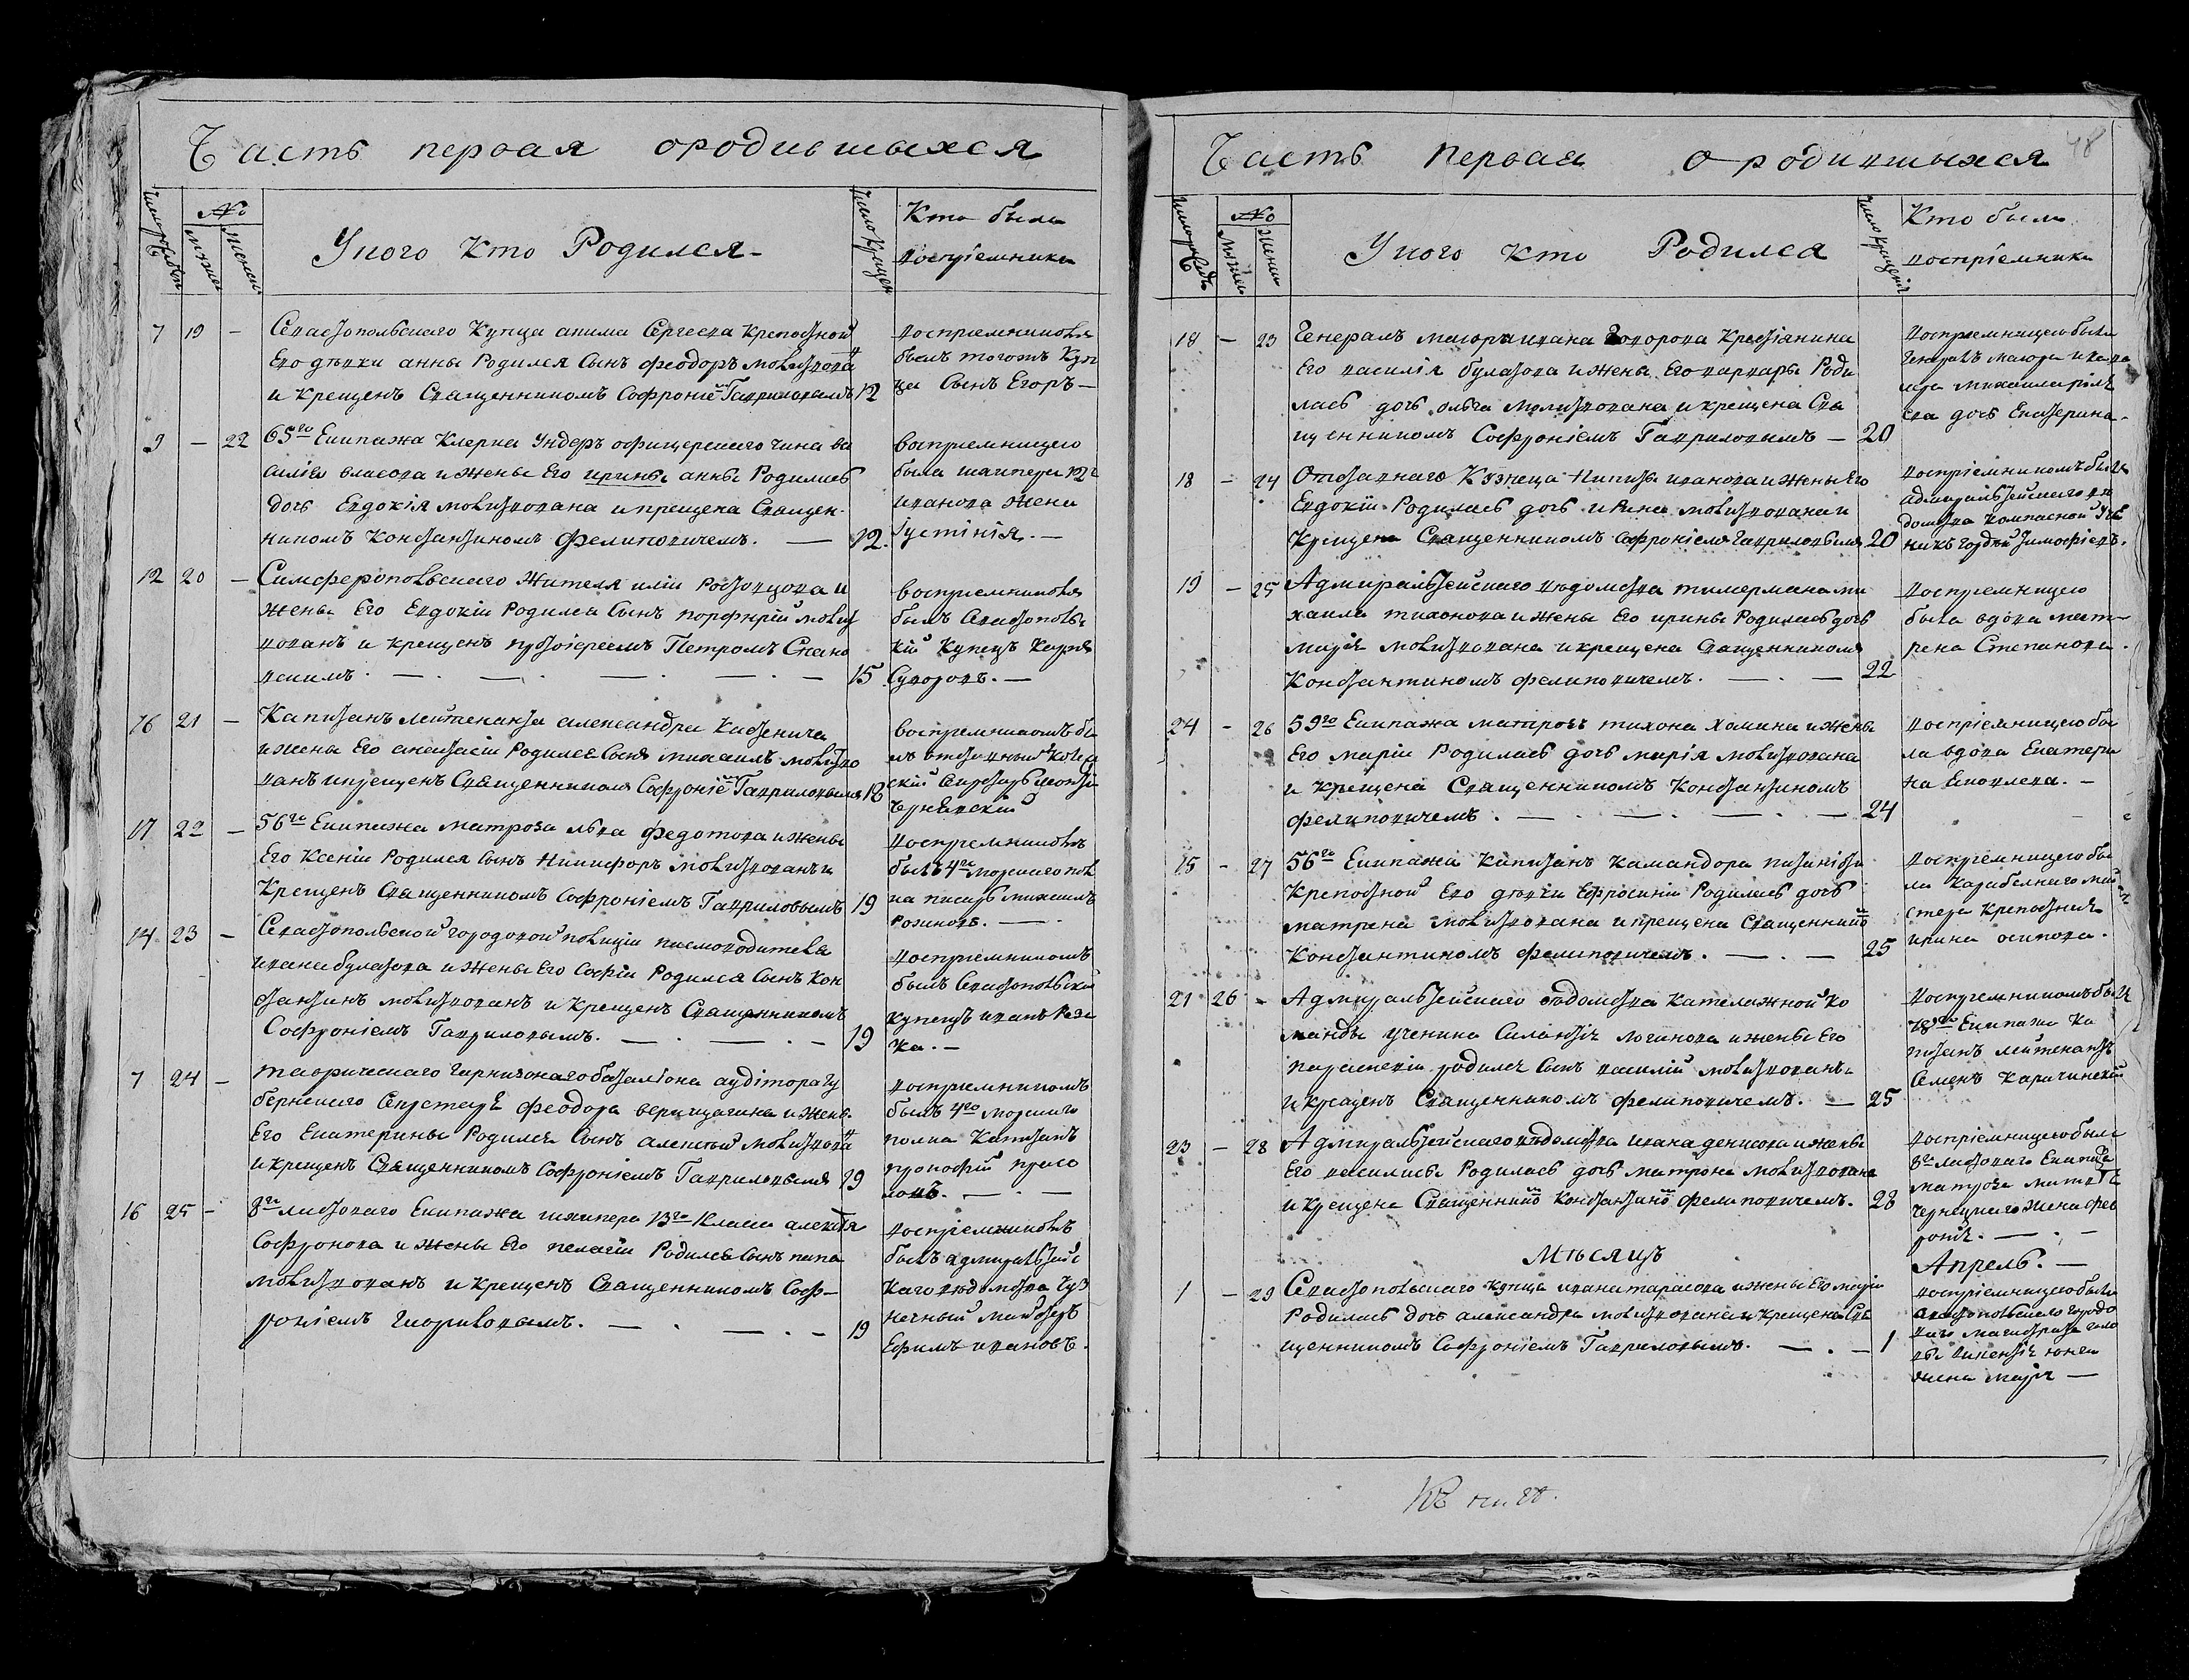 Часть первая ородившыхся
Число рожден
№
Мужеск
Женск
Уного Кто Родился
Число Крещен
Кто были
воспріемники
7 19 – Севастопольскаго Купца акима Сергеева Крепостной
Его девки анны Родился Сынъ феодоръ моlитвова н
и Крещенъ Священникомъ Софроніе Гавриловымъ 12
воспріемникомъ
былъ тогожъ Куп
ца Сынъ Егоръ –
9 – 22 65го Екипажа Клерка Ундеръ офицерскаго чина ва
силія власова и жены Его ирины анны Родилась
дочь Евдокія молитвована и крещена Священ-
никомъ Константиномъ Фелиповичемъ. — 12.
воспріемницею
была шкипера 12 г
иванова жена
Іустінія. —
12 20 – Симферопольскаго Жителя иліи Ростовцова и
жены Его Евдокіи Родился Сынъ порфирій молит
вованъ и крещенъ протоіереемъ Петромъ Спано
вскимъ. — 15
воспріемникомъ
былъ Севастопольс
кій Купецъ Карпъ
Суворовъ. —
16 21 – Капитанъ лейтенанта александра
и жены Его анастасіи Родился Сынъ михаилъ молитво
ванъ икрещенъ Священникомъ Софроніе Гавриловымъ 18
воспріемникомъ бы
лъ отставный
скій Секретарь
Чернявскій
17 22 – 56го Екипажа матроза льва федотова и жены
Его Ксеніи Родился Сынъ Никифоръ молитвованъ и
Крещенъ Священникомъ Софроніемъ Гавриловымъ 19
воспріемникомъ
былъ 4го морскаго пол
ка писарь михаилъ
Розиновъ. —
14 23 – Севастопольской городовой полиціи писмоводителя
ивана булатова и жены Его Софіи Родился Сынъ Кон
стантинъ молитвованъ и Крещенъ Священникомъ
Софроніемъ Гавриловымъ. — 19
воспріемникомъ
былъ Севастопольскій
купецъ иванъ
ка. —
7 24 – таврическаго гарнизонаго баталіона аудитора гу
бернскаго Секретаря феодора верещагина и жены
Его Екатерины Родился Сынъ алексей молитвова н
и крещенъ Священникомъ Софроніемъ Гавриловымъ 19
воспріемникомъ
былъ 4го морскаго
полка Капитанъ
прокофій
ловъ. —
16 25 – 8го ластоваго Екипажа шкипера 13го Класса алексея
Софронова и жены Его пелагіи Родился Сынъ
молитвованъ и крещенъ Священникомъ Соф-
роніемъ Гавриловымъ. — 19
воспріемникомъ
былъ адмиралтейс
каго ведомства Куз
нечный
Ефимъ ивановъ.
48
Часть первая о родившыхся
Число рожд
№
Мужес
Женск
Уного кто Родился
Число крещеній
Кто были
воспріемники
18 – 23 Генералъ маіора ивана Говорова Крестіанина
Его василія булатова и жены Его варвары Роди
лась дочь ольга молитвована и крещена Свя
щенникомъ Софроніемъ Гавриловымъ — 20
воспріемницею была
Генералъ маіора и кава
лера михаила
ева дочь Екатерина.
18 – 24 Отставнаго Кузнеца Никиты иванова и жены Его
Евдокіи Родилась дочь ирина молитвована и
Крещена Священникомъ Софроніемъ Гавриловымъ 20
воспріемникомъ былъ
адмиралтейскаго ве
домства компасной Уче
никъ гордей тимофіевъ.
19 – 25 Адмиралтейскаго ведомства тимермана ми
хаила тихонова и жены Его ирины Родилась дочь
марія молитвована и крещена Священникомъ
Константиномъ фелиповичемъ. — 22
воспріемницею
была вдова мат-
рена Степанова.
24 – 26 59го Екипажа матроза тихона Хомина и жены
Его маріи Родилась дочь марія молитвована
и крещена Священникомъ Константиномъ
фелиповичемъ. — 24
воспріемницею бы
ла вдова Екатери
на Яковлева. –
15 – 27 56го Екипажа Капитанъ Камандора
Крепостной Его девки Ефросиніи Родилась дочь
матрона молитвована и крещена Священнико
Константиномъ фелиповичемъ. — 25
воспріемницею бы
ла Карабелнаго ма
стера Крепостная
ирина осипова.
21 26 – Адмиралтейскаго ведомства Кателажной Ко
манды ученика Силантія логинова и жены Его
параскевіи родился Сынъ василій молитвованъ
и крещенъ Священникомъ фелиповичемъ. — 25
воспріемникомъ былъ
Екипажа Ка
питанъ лейтенантъ
Семенъ Карачинскій
23 – 28 Адмиралтейскаго ведомства ивана денисова и жены
Его василисы Родилась дочь матрона молитвована
и крещена Священнико Константино фелиповичемъ. 28
воспріемницею была
8го ластоваго Екипажа
матроза
жена фев
ронія. —
Месяцъ Апрель. —
1 – 29 Севастопольскаго купца ивана тарасова и жены Его маріи
Родилась дочь александра молитвована и Крещена Свя
щенникомъ Софроніемъ Гавриловымъ. — 1
воспріемницею была
Севастопольскаго городо
ваго магистрата голо
вы
жена марія —